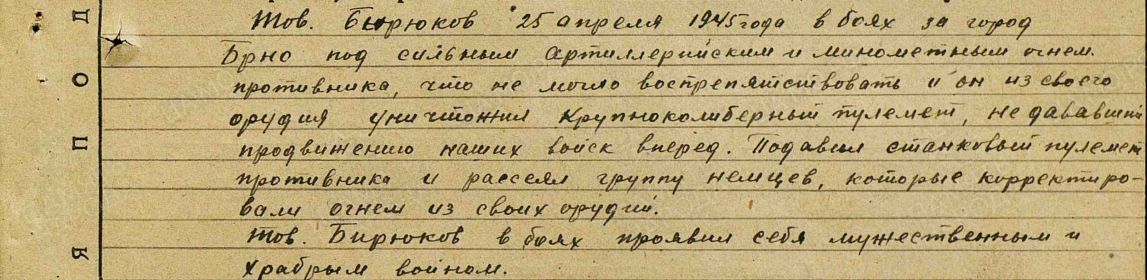 Тов. Бирюков 25 апреля 1945 года в боях за город
Брно под сильным артиллерийским и минометным огнем
противника, что не могло воспрепятствовать и он из своего
орудия уничтожил крупноколиберный пулемет, не дававший
продвижению наших войск вперед. Подавил станковый пулемет
противника и рассеял группу немцев, которые корректиро-
вали огнем из своих орудий.
Тов. Бирюков в боях проявил себя мужественным и
храбрым войном.
Д
О
П
П
Я